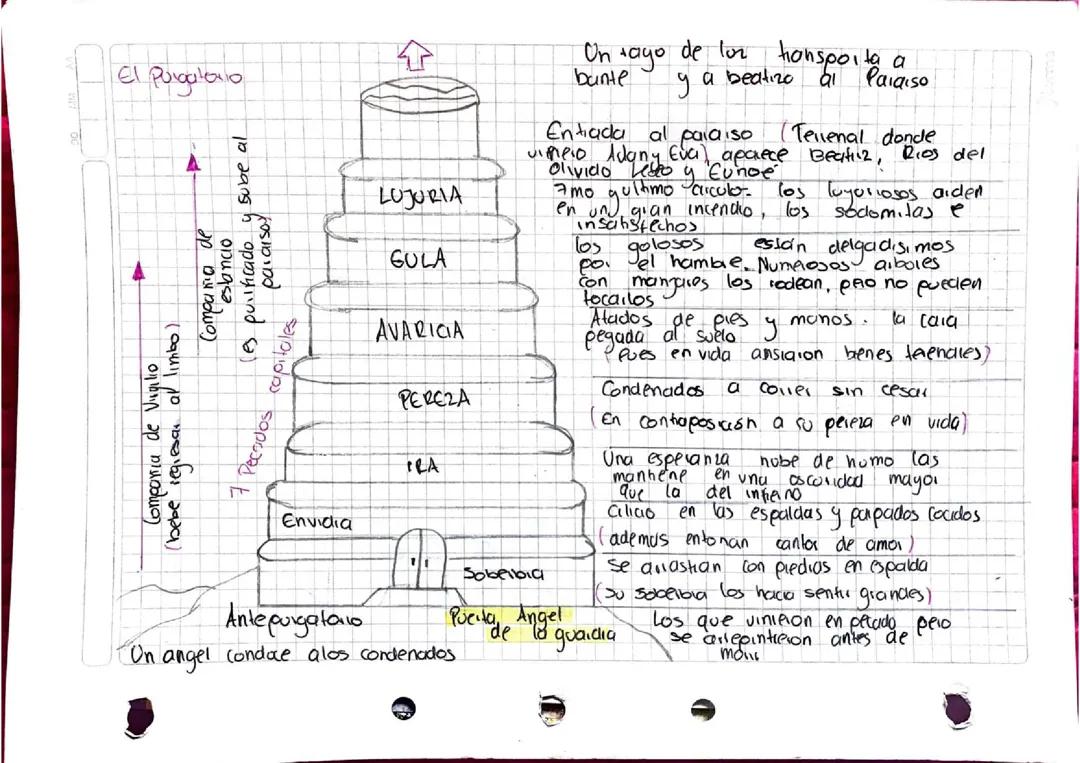 El Purgatorio
Un rayo de luz transporta a
Dante y a beatriz al Paraiso
Entrada al paraiso (Terrenal donde
vivieron Adan y Eva) aparece Beatriz, Rios del
olvido Leteo y Eunoé
7mo y ultimo circulo- los lujuriosos arden
en un gran incendio, los sodomitas e
insatisfechos
LUJURIA
los golosos están delgadisimos
por el hambre. Numerosos arboles
con manjares los rodean, pero no pueden
tocarlos
GULA
Atados de pies y manos. la cara
pegada al suelo
(pues en vida ansiaron bienes terrenales)
AVARICIA
Condenados a correr sin cesar
(En contraposición a su pereza en vida)
PEREZA
Una esperanza nube de humo las
mantiene en una oscuridad mayor
que la del infierno
IRA
Cilicio en las espaldas y parpados cocidos
(ademas entonan cantos de amor)
Envidia
Se arrastran con piedras en espalda
(su soberbia los hacia sentir grandes)
Soberbia
Los que vivieron en pecado pero
se arrepintieron antes de
morir
Antepurgatorio
Puerta, Angel
de la guardia
Un angel conduce a los condenados
Compañia de Virgilio
(bebe regresar al limbo)
Compañia de
estancio
(es purificado y sube al
paraiso)
7 Pecados capitales